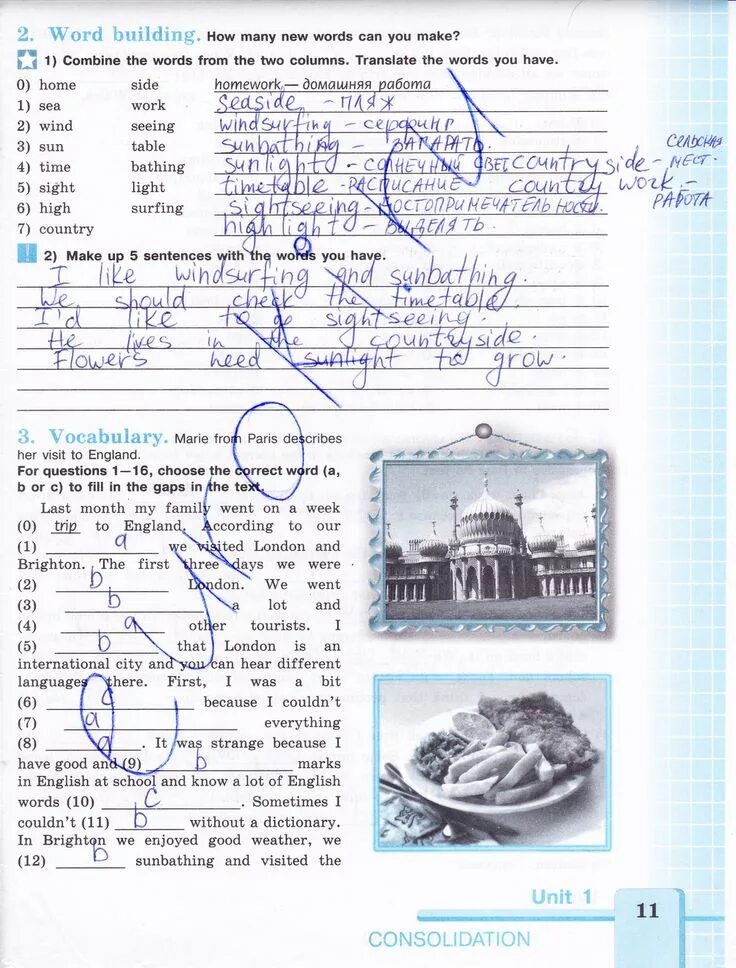 2. Word building. How many new words can you make?
1) Combine the words from the two columns. Translate the words you have.
0) home side homework — домашняя работа
1) sea work Seaside - ПЛЯЖ
2) wind seeing windsurfing - серфинг
3) sun table sunbathing - ЗАГАРАТЬ.
4) time bathing sunlight - СОЛНЕЧНЫЙ СВЕТ countryside - СЕЛЬСКАЯ МЕСТ.
5) sight light timetable - РАСПИСАНИЕ country work - РАБОТА
6) high surfing sightseeing - ДОСТОПРИМЕЧАТЕЛЬНОСТИ.
7) country highlight - ВЫДЕЛЯТЬ.
2) Make up 5 sentences with the words you have.
I like windsurfing and sunbathing.
We should check the timetable.
I'd like to go sightseeing.
He lives in the countryside.
Flowers need sunlight to grow.
3. Vocabulary. Marie from Paris describes
her visit to England.
For questions 1–16, choose the correct word (a,
b or c) to fill in the gaps in the text.
Last month my family went on a week
(0) trip to England. According to our
(1) a we visited London and
Brighton. The first three days we were
(2) b London. We went
(3) b a lot and
(4) a other tourists. I
(5) b that London is an
international city and you can hear different
languages there. First, I was a bit
(6) c because I couldn't
(7) a everything
(8) a. It was strange because I
have good and (9) b marks
in English at school and know a lot of English
words (10) c. Sometimes I
couldn't (11) b without a dictionary.
In Brighton we enjoyed good weather, we
(12) b sunbathing and visited the
Unit 1
11
CONSOLIDATION